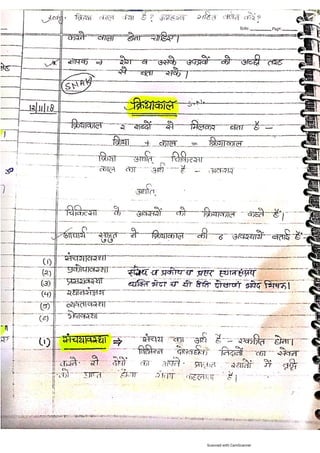 प्रश्न:- क्रिया काल क्या है? उदाहरण सहित वर्णन करें?
Date Page
करने वाला होना चाहिए।
रोग व उसके उपद्रवों को अच्छी तरह
से बता सके।
13/11/18
क्रियाकाल
क्रियाकाल 2 शब्दों से मिलकर बना है -
क्रिया + काल = क्रियाकाल
क्रिया अर्थात् चिकित्सा
काल का अर्थ है - अवसर
अर्थात्
चिकित्सा के अवसरों को क्रियाकाल कहते हैं।
आचार्य सुश्रुत ने क्रियाकाल की 6 अवस्थायें बताई हैं-
(1) संचयावस्था
(2) प्रकोपावस्था
(3) प्रसरावस्था
(4) स्थानसंश्रय
(5) व्यक्तावस्था
(6) भेदावस्था
संचयं च प्रकोपं च प्रसरं स्थानसंश्रयम्
व्यक्तिं भेदं च यो वेत्ति दोषाणां भवेद् भिषक्।
(1) संचयावस्था ⇒ संचय का अर्थ है - एकत्रित होना।
विभिन्न दोषवर्धक निदानों का सेवन
करने से दोषों का अपने स्थानों में वृद्धि
को प्राप्त होना संचय कहलाता है।
Scanned with CamScanner